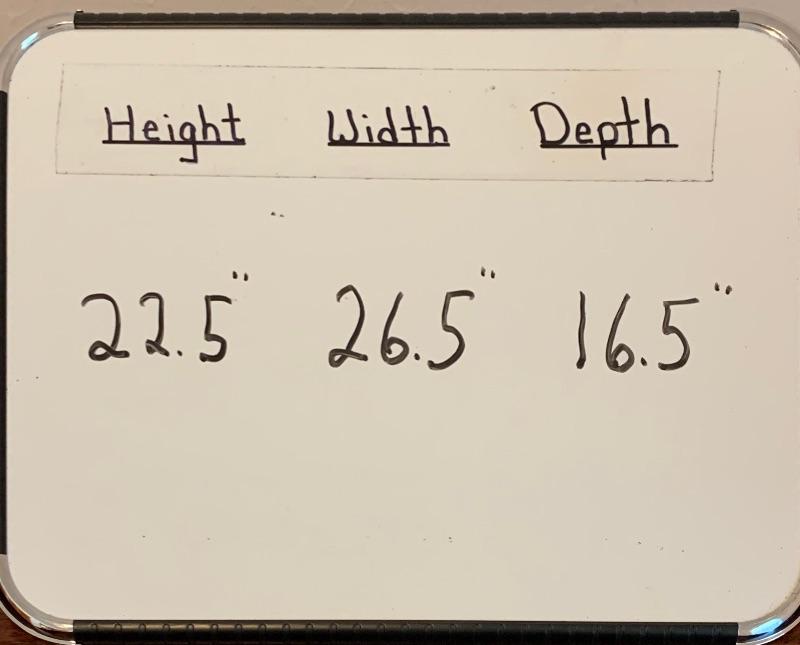 Height Width Depth
22.5" 26.5" 16.5"